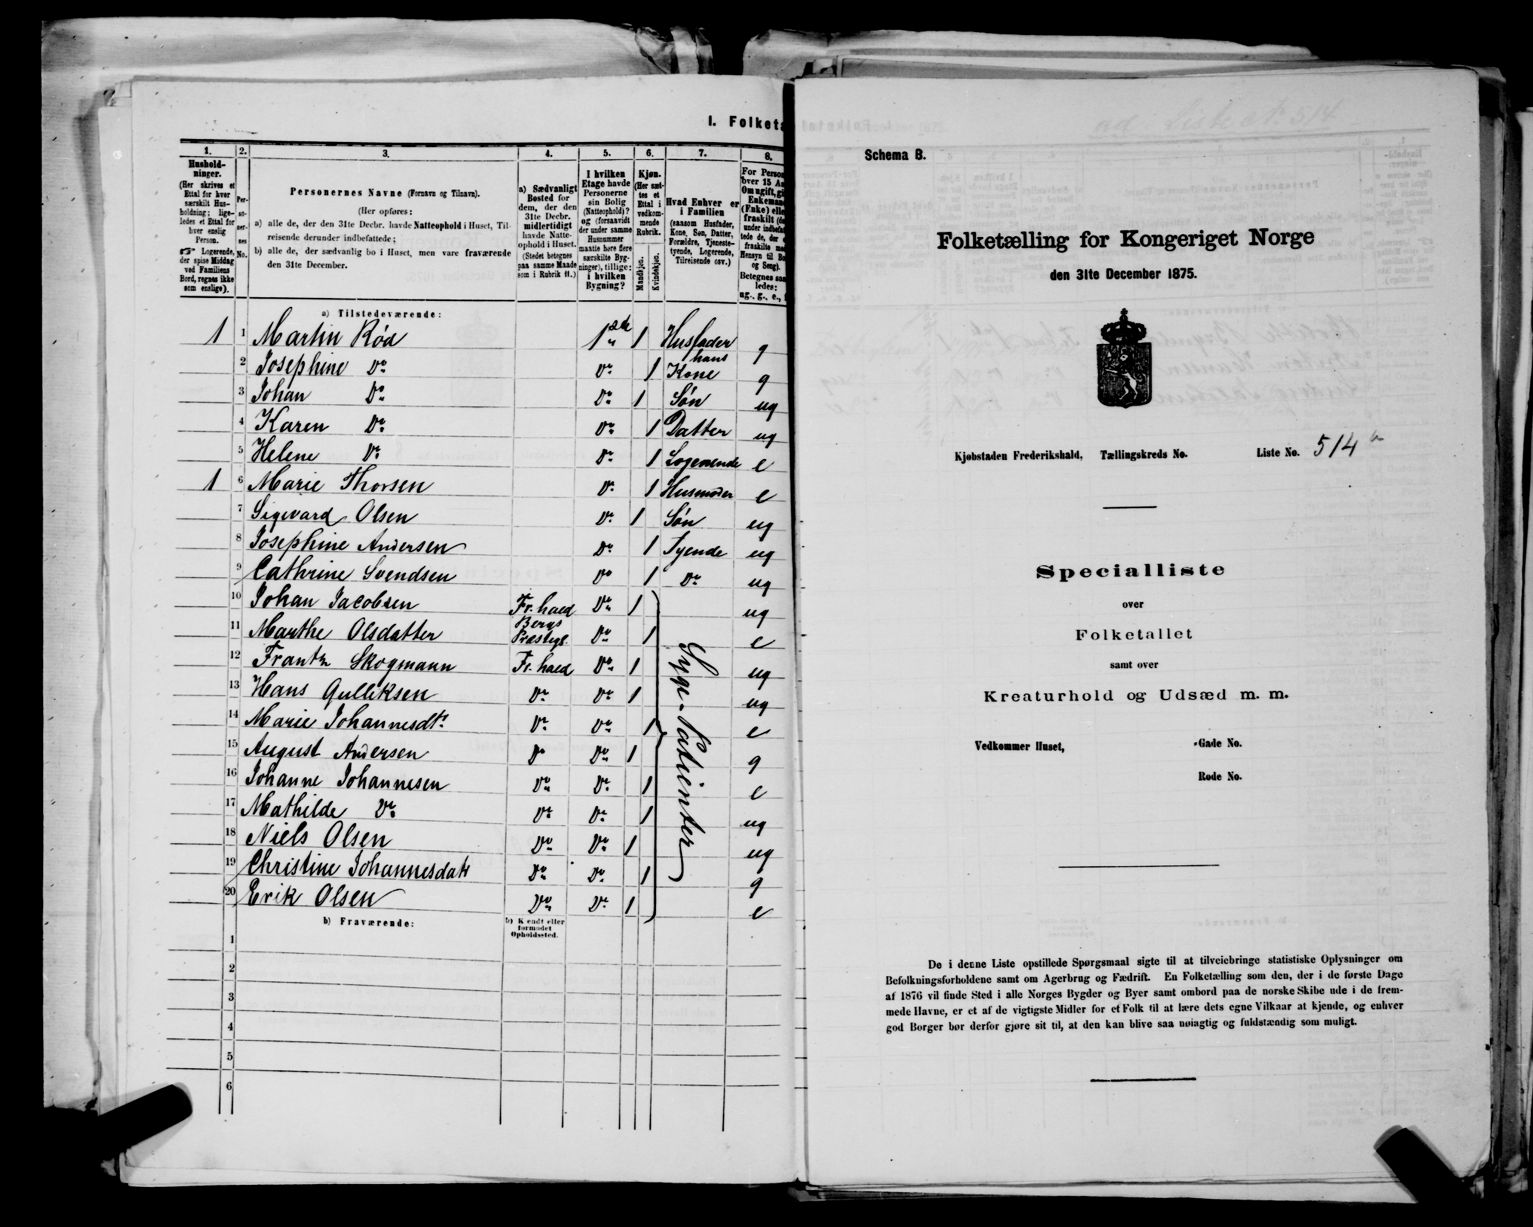 I. Folketa
1. 2. 3. 4. 5. 6. 7. 8.
Hushold-
ninger.
(Her skrives et
Ettal for hver
særskilt Hus-
holdning; lige-
ledes et Ettal for
hver enslig
Person.
Logerende,
der spise Middag
ved Familiens
Bord, regnes ikke
som enslige).
Per-
so-
ner-
nes
No.
Personernes Navne (Fornavn og Tilnavn).
(Her opføres:
a) alle de, der den 31te Decbr. havde Natteophold i Huset, Til-
reisende derunder indbefattede;
b) alle de, der sædvanlig bo i Huset, men vare fraværende
den 31te December.
a) Sædvanligt
Bosted for
dem, der den
31te Decbr.
midlertidigt
havde Natte-
ophold i Huset.
(Stedet betegnes
paa samme Maade
som i Rubrik 11.)
I hvilken
Etage havde
Personerne
sin Bolig
(Natteophold)?
og (forsaavidt
der under samme
Husnummer
maatte høre flere
særskilte Byg-
ninger), tillige:
i hvilken
Bygning?
Kjøn.
(Her sæt-
tes et
Ettal i
vedkom-
mende
Rubrik.
Mandkjøn.
Kvindekjøn.
Hvad Enhver er
i Familien
(saasom Husfader,
Kone, Søn, Datter,
Forældre, Tjeneste-
tyende, Logerende,
Tilreisende osv.)
For Person
over 15 Aa
Om ugift, gi
Enkeman
(Enke) elle
fraskilt (de
under indbefat
tede de, der e
fraskilte me
Hensyn til Bo
og Seng).
Betegnes saa
ledes:
ug., g., e., f
a) Tilstedeværende:
1 1 Martin Rød 1ste 1 Husfader g
2 Josephine Do Do 1 hans Kone g
3 Johan Do Do 1 Søn ug
4 Karen Do Do 1 Datter ug
5 Helene Do Do 1 Logerende e
1 6 Marie Thorsen Do 1 Husmoder e
7 Sigvard Olsen Do 1 Søn ug
8 Josephine Andersen Do 1 Tyende ug
9 Cathrine Svendsen Do 1 Do ug
10 Johan Jacobsen Fr.hald Do 1 ug
11 Marthe Olsdatter Bergs Præstegl. Do 1 e
12 Frantz Skogmann Fr. hald Do 1 ug
13 Hans Gulliksen Do Do 1 ug
14 Marie Johannesdtr Do Do 1 e
15 August Andersen Do Do 1 g
16 Johanne Johannesen Do Do 1 e
17 Mathilde Do Do Do 1 ug
18 Niels Olsen Do Do 1 ug
19 Christine Johannesdatr Do Do 1 g
20 Erik Olsen Do Do 1 e
Syge-Patienter
b) Fraværende:
b) Kjendt eller
formodet
Opholdssted.
1
2
3
4
5
6
Schema B.
Folketælling for Kongeriget Norge
den 31te December 1875.
Kjøbstaden Frederikshald, Tællingskreds No. Liste No. 514
Specialliste
over
Folketallet
samt over
Kreaturhold og Udsæd m. m.
Vedkommer Huset, -Gade No.
Rode No.
De i denne Liste opstillede Spørgsmaal sigte til at tilveiebringe statistiske Oplysninger om
Befolkningsforholdene samt om Agerbrug og Fædrift. En Folketælling som den, der i de første Dage
af 1876 vil finde Sted i alle Norges Bygder og Byer samt ombord paa de norske Skibe ude i de frem-
mede Havne, er et af de vigtigste Midler for et Folk til at lære dets egne Vilkaar at kjende, og enhver
god Borger bør derfor gjøre sit til, at den kan blive saa nøiagtig og fuldstændig som muligt.